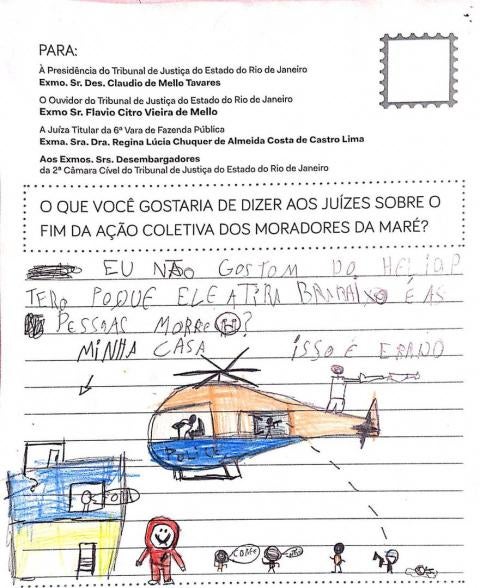 PARA:
À Presidência do Tribunal de Justiça do Estado do Rio de Janeiro
Exmo. Sr. Des. Claudio de Mello Tavares
O Ouvidor do Tribunal de Justiça do Estado do Rio de Janeiro
Exmo Sr. Flavio Citro Vieira de Mello
A Juíza Titular da 6ª Vara de Fazenda Pública
Exma. Sra. Dra. Regina Lúcia Chuquer de Almeida Costa de Castro Lima
Aos Exmos. Srs. Desembargadores
da 2ª Câmara Cível do Tribunal de Justiça do Estado do Rio de Janeiro
O QUE VOCÊ GOSTARIA DE DIZER AOS JUÍZES SOBRE O
FIM DA AÇÃO COLETIVA DOS MORADORES DA MARÉ?
EU NÃO GOSTOM DO HELIOP
TERO POQUE ELE ATIRA BAXO É AS
PESSOAS MORRE?
MINHA CASA ISSO É ERADO
POLICE
CORRE